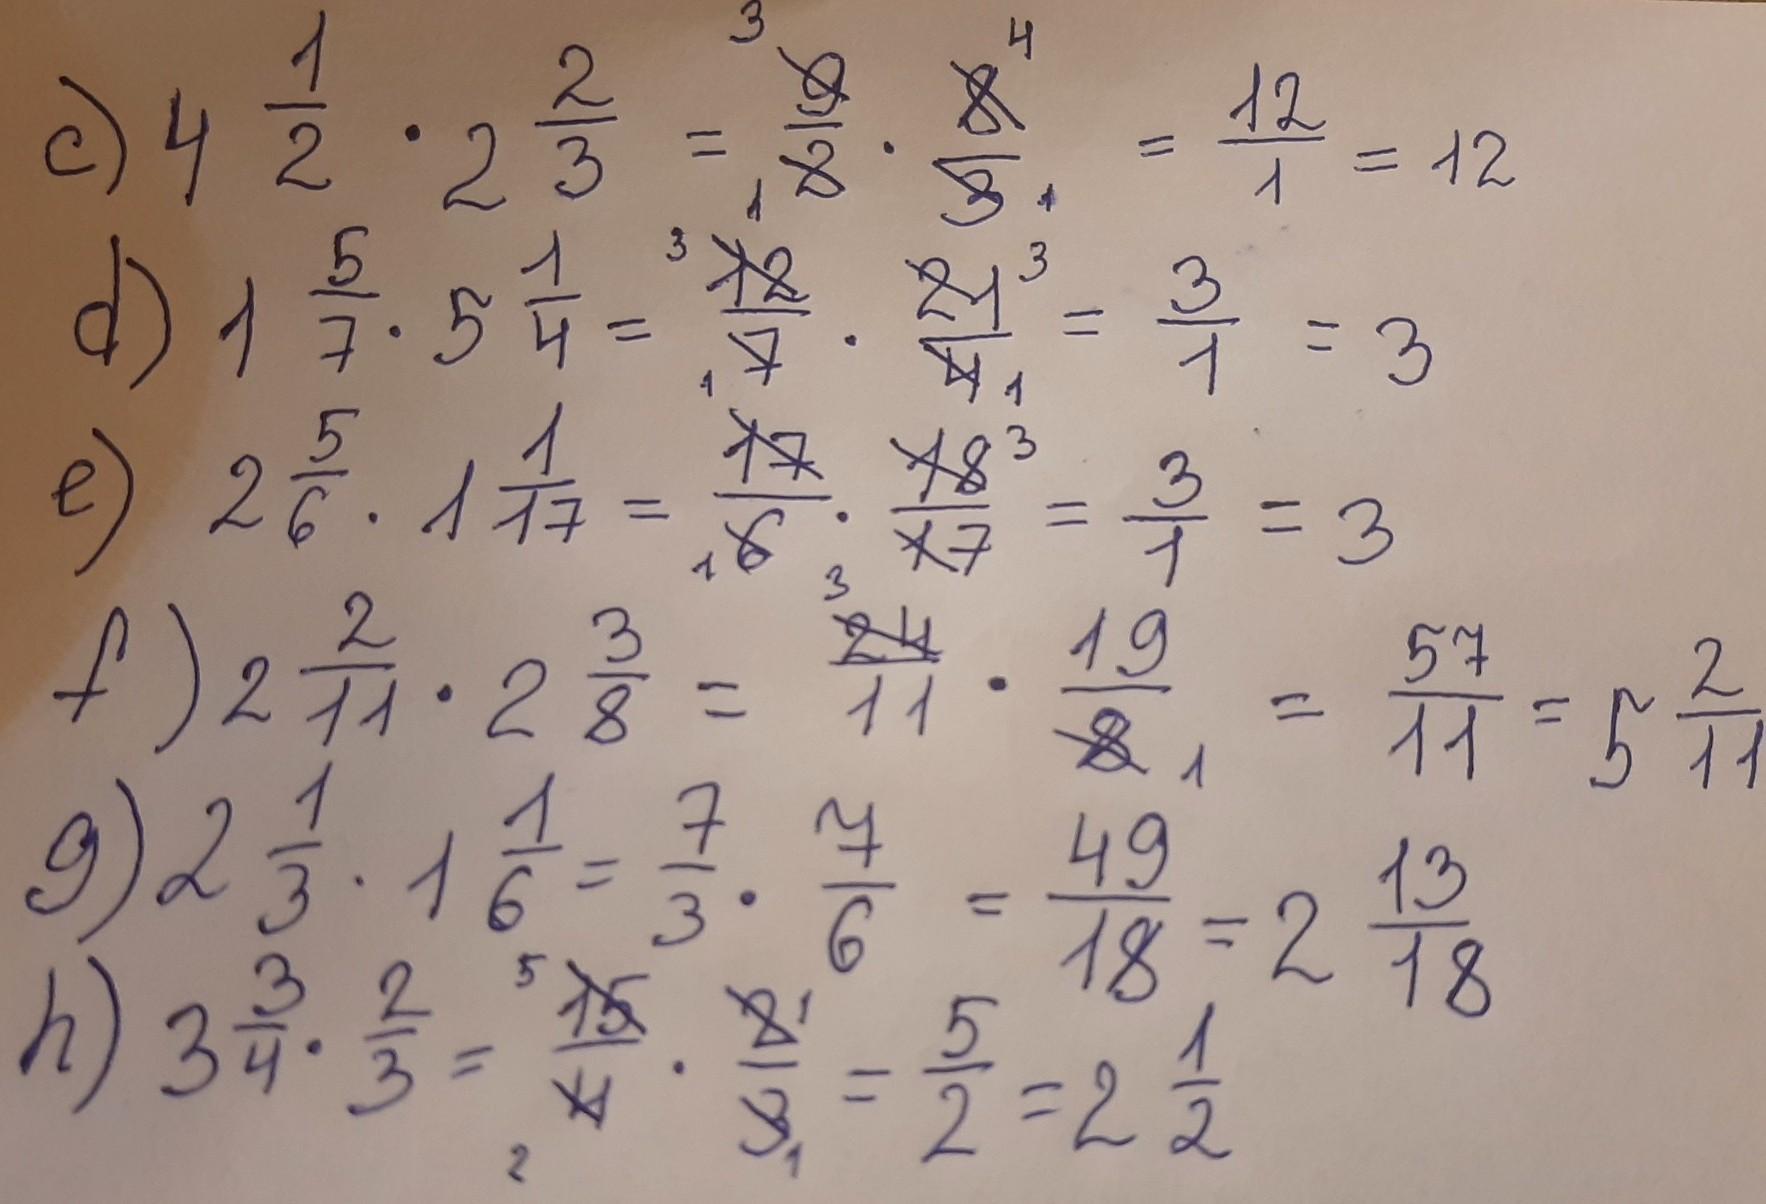 c) 4 1/2 · 2 2/3 = 3 9/2 1 · 8/3 4 1 = 12/1 = 12
d) 1 5/7 · 5 1/4 = 3 12/7 1 · 21/4 3 1 = 3/1 = 3
e) 2 5/6 · 1 1/17 = 17/6 1 · 18/17 3 = 3/1 = 3
f) 2 2/11 · 2 3/8 = 3 24/11 · 19/8 1 = 57/11 = 5 2/11
g) 2 1/3 · 1 1/6 = 7/3 · 7/6 = 49/18 = 2 13/18
h) 3 3/4 · 2/3 = 5 15/4 2 · 2/3 1 1 = 5/2 = 2 1/2